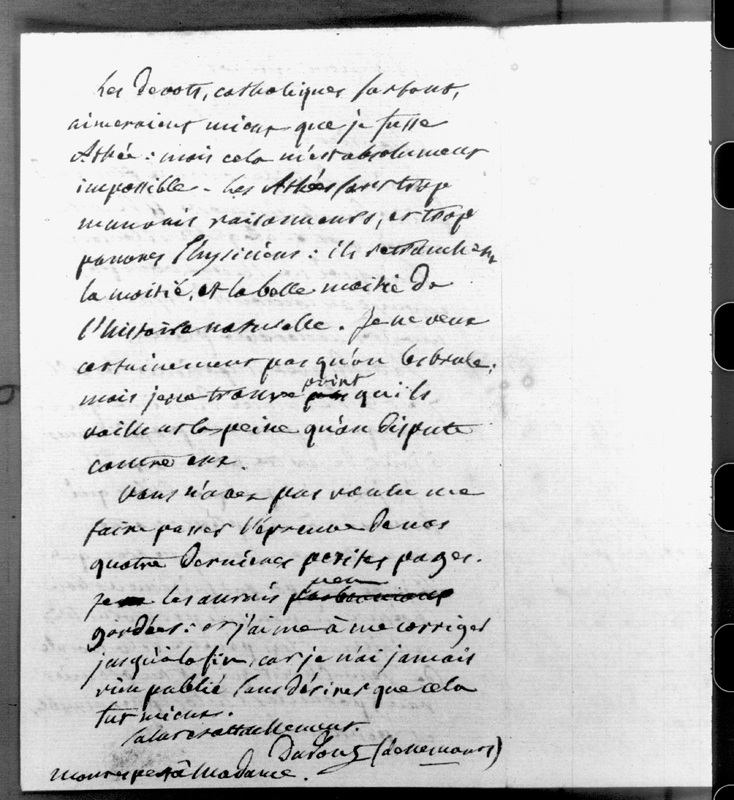 Les Devots, catholiques surtout,
aimeraient mieux que je fusse
Athée: mais cela m'est absolument
impossible - Les Athées sont trop
mauvais raisonneurs, et trop
pauvres Physiciens: ils retranchent
la moitié, et la belle moitié de
l'histoire naturelle. Je ne veux
certainement pas qu'on les brule;
mais je ne trouve point qu'ils
vaillent la peine qu'on dispute
contre eux.
Vous n'avez pas voulu me
faire passer l'épreuve de nos
quatre dernieres petites pages.
Je les aurais peu
gardées: et j'aime à me corriger
jusqu'à la fin, car je n'ai jamais
rien publié sans désirer que cela
fut mieux.
Salut et attachement.
DuPont (de Nemours)
mon respect à Madame.